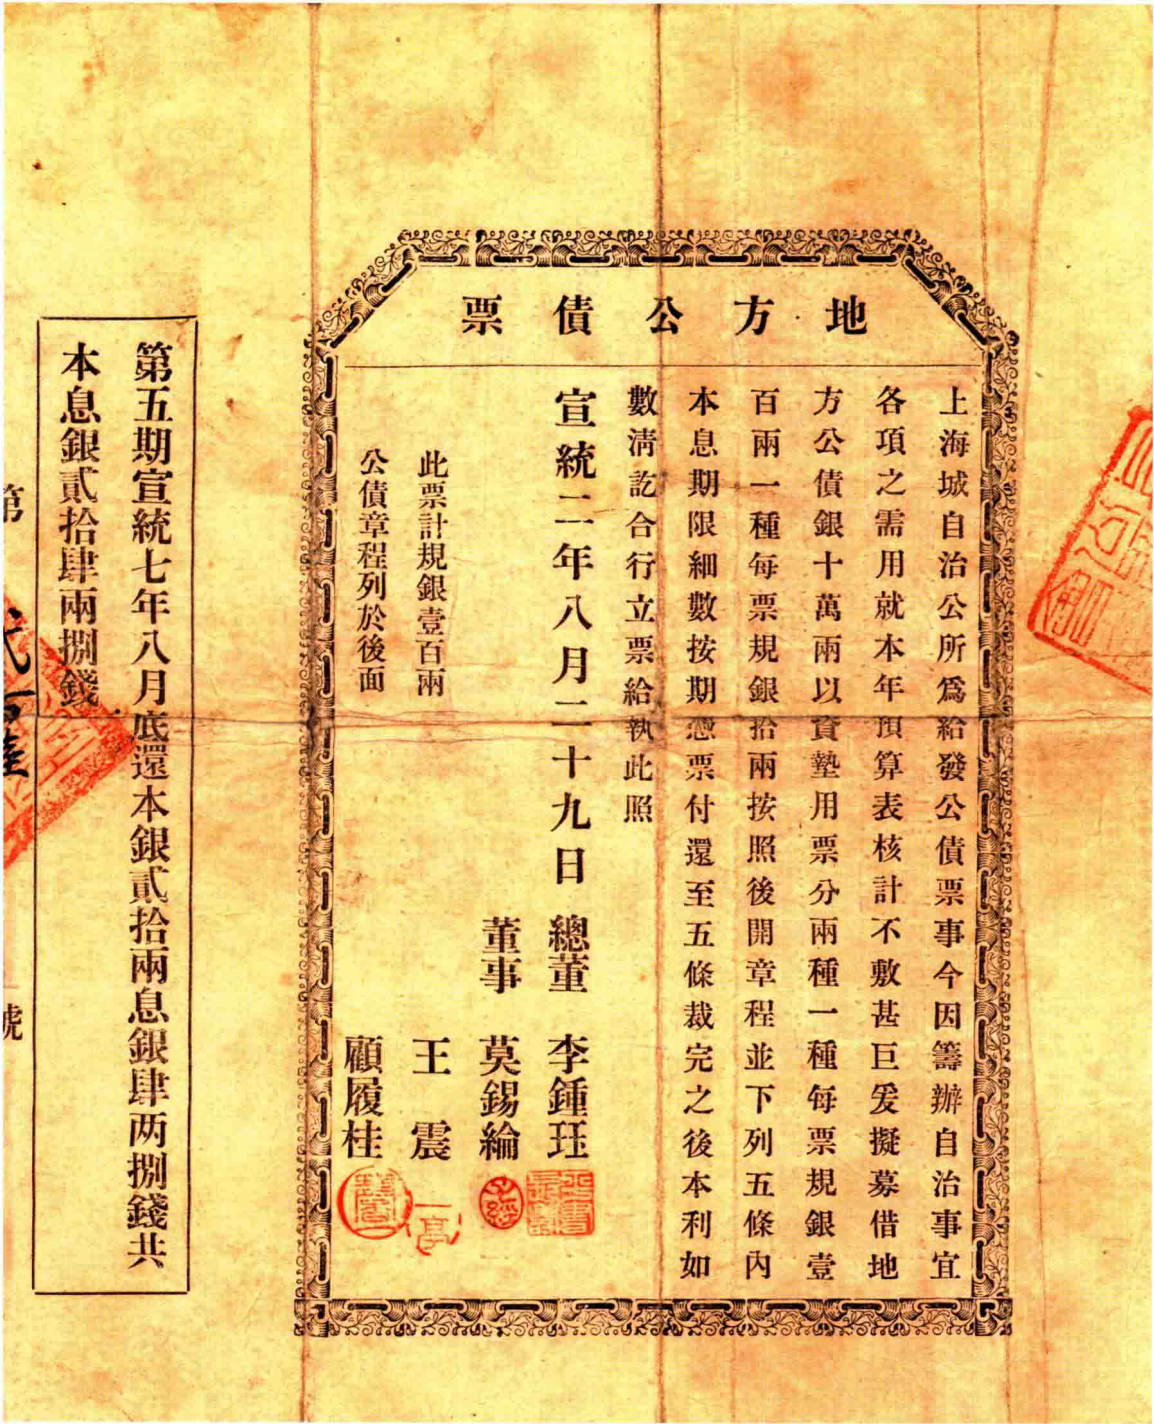 地方公債票
上海城自治公所爲給發公債票事今因籌辦自治事宜
各項之需用就本年預算表核計不敷甚巨爰擬募借地
方公債銀十萬兩以資墊用票分兩種一種每票規銀壹
百兩一種每票規銀拾兩按照後開章程並下列五條內
本息期限細數按期憑票付還至五條裁完之後本利如
數淸訖合行立票給執此照
宣統二年八月二十九日
總董 李鍾珏
董事 莫錫綸
王震
顧履桂
此票計規銀壹百兩
公債章程列於後面
第五期宣統七年八月底還本銀貳拾兩息銀肆两捌錢共
本息銀貳拾肆兩捌錢
第
號